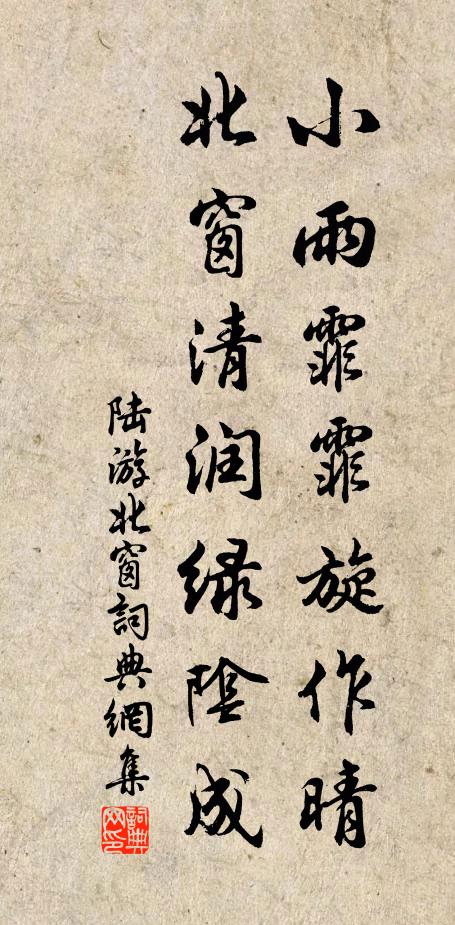 小雨霏霏旋作晴
北窗清润绿陰成
陆游北窗詞典網集
詞典网印